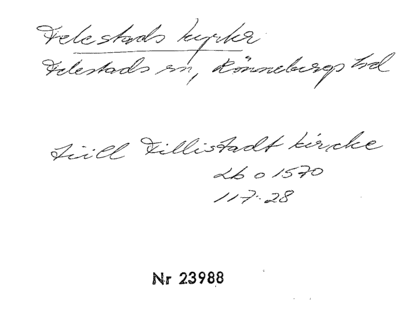 Felestads kyrka
Felestads sn, Rönnebergs hd
till Fillistadt kircke
Lb o 1570
117:28
Nr 23988